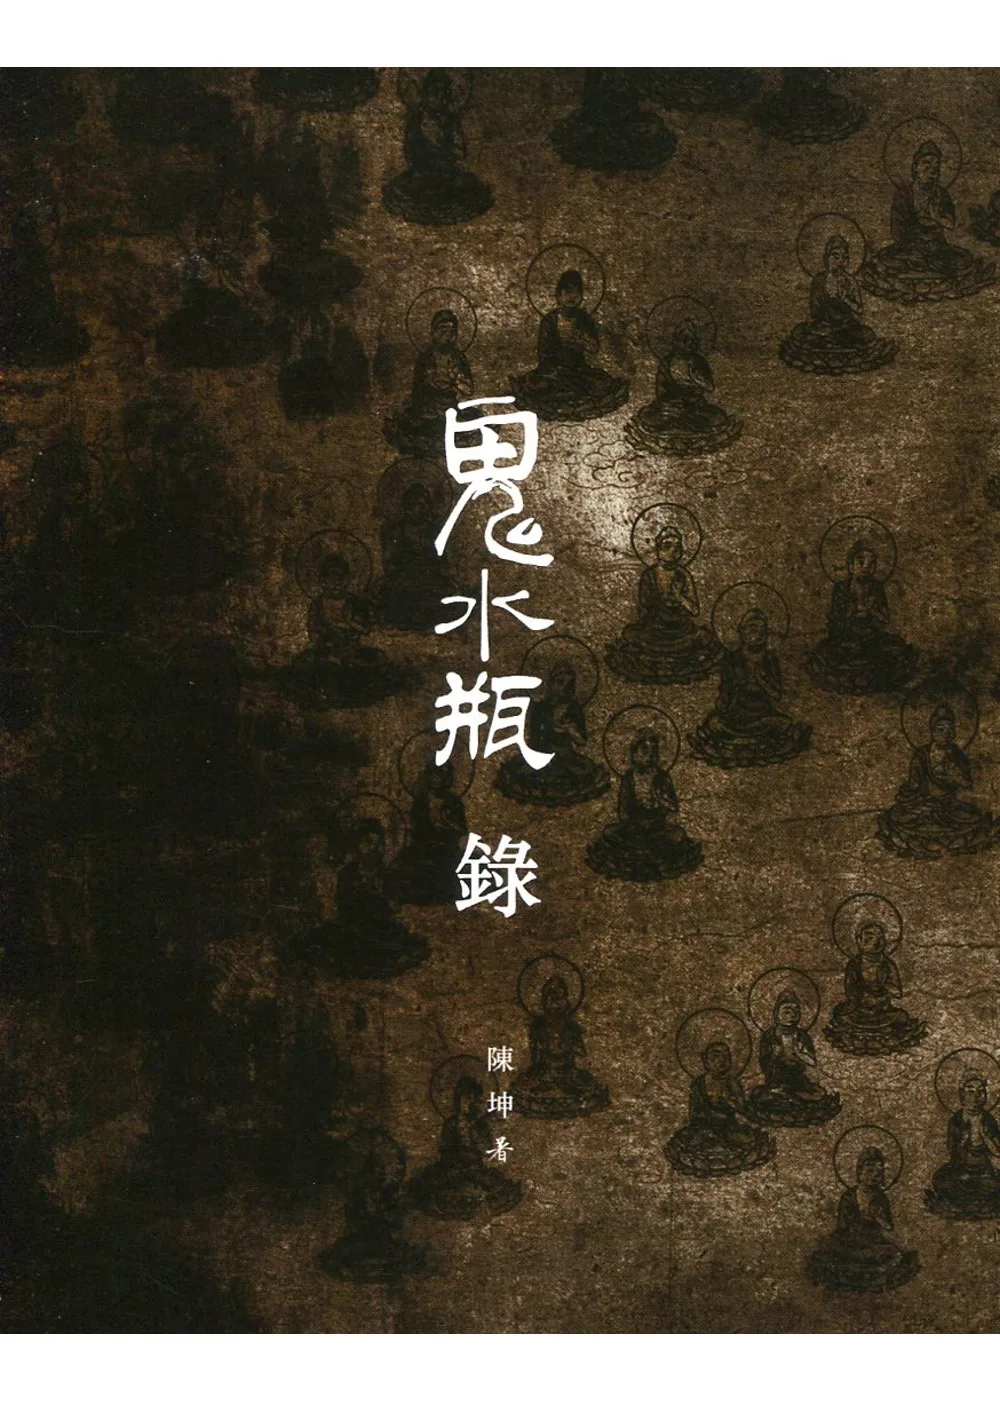 鬼水瓶錄
陳坤著